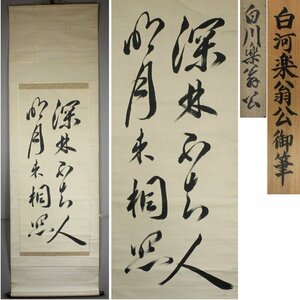 深林不知人
明月来相照
深林不知人
明月来相照
白川楽翁公
白河楽翁公御筆